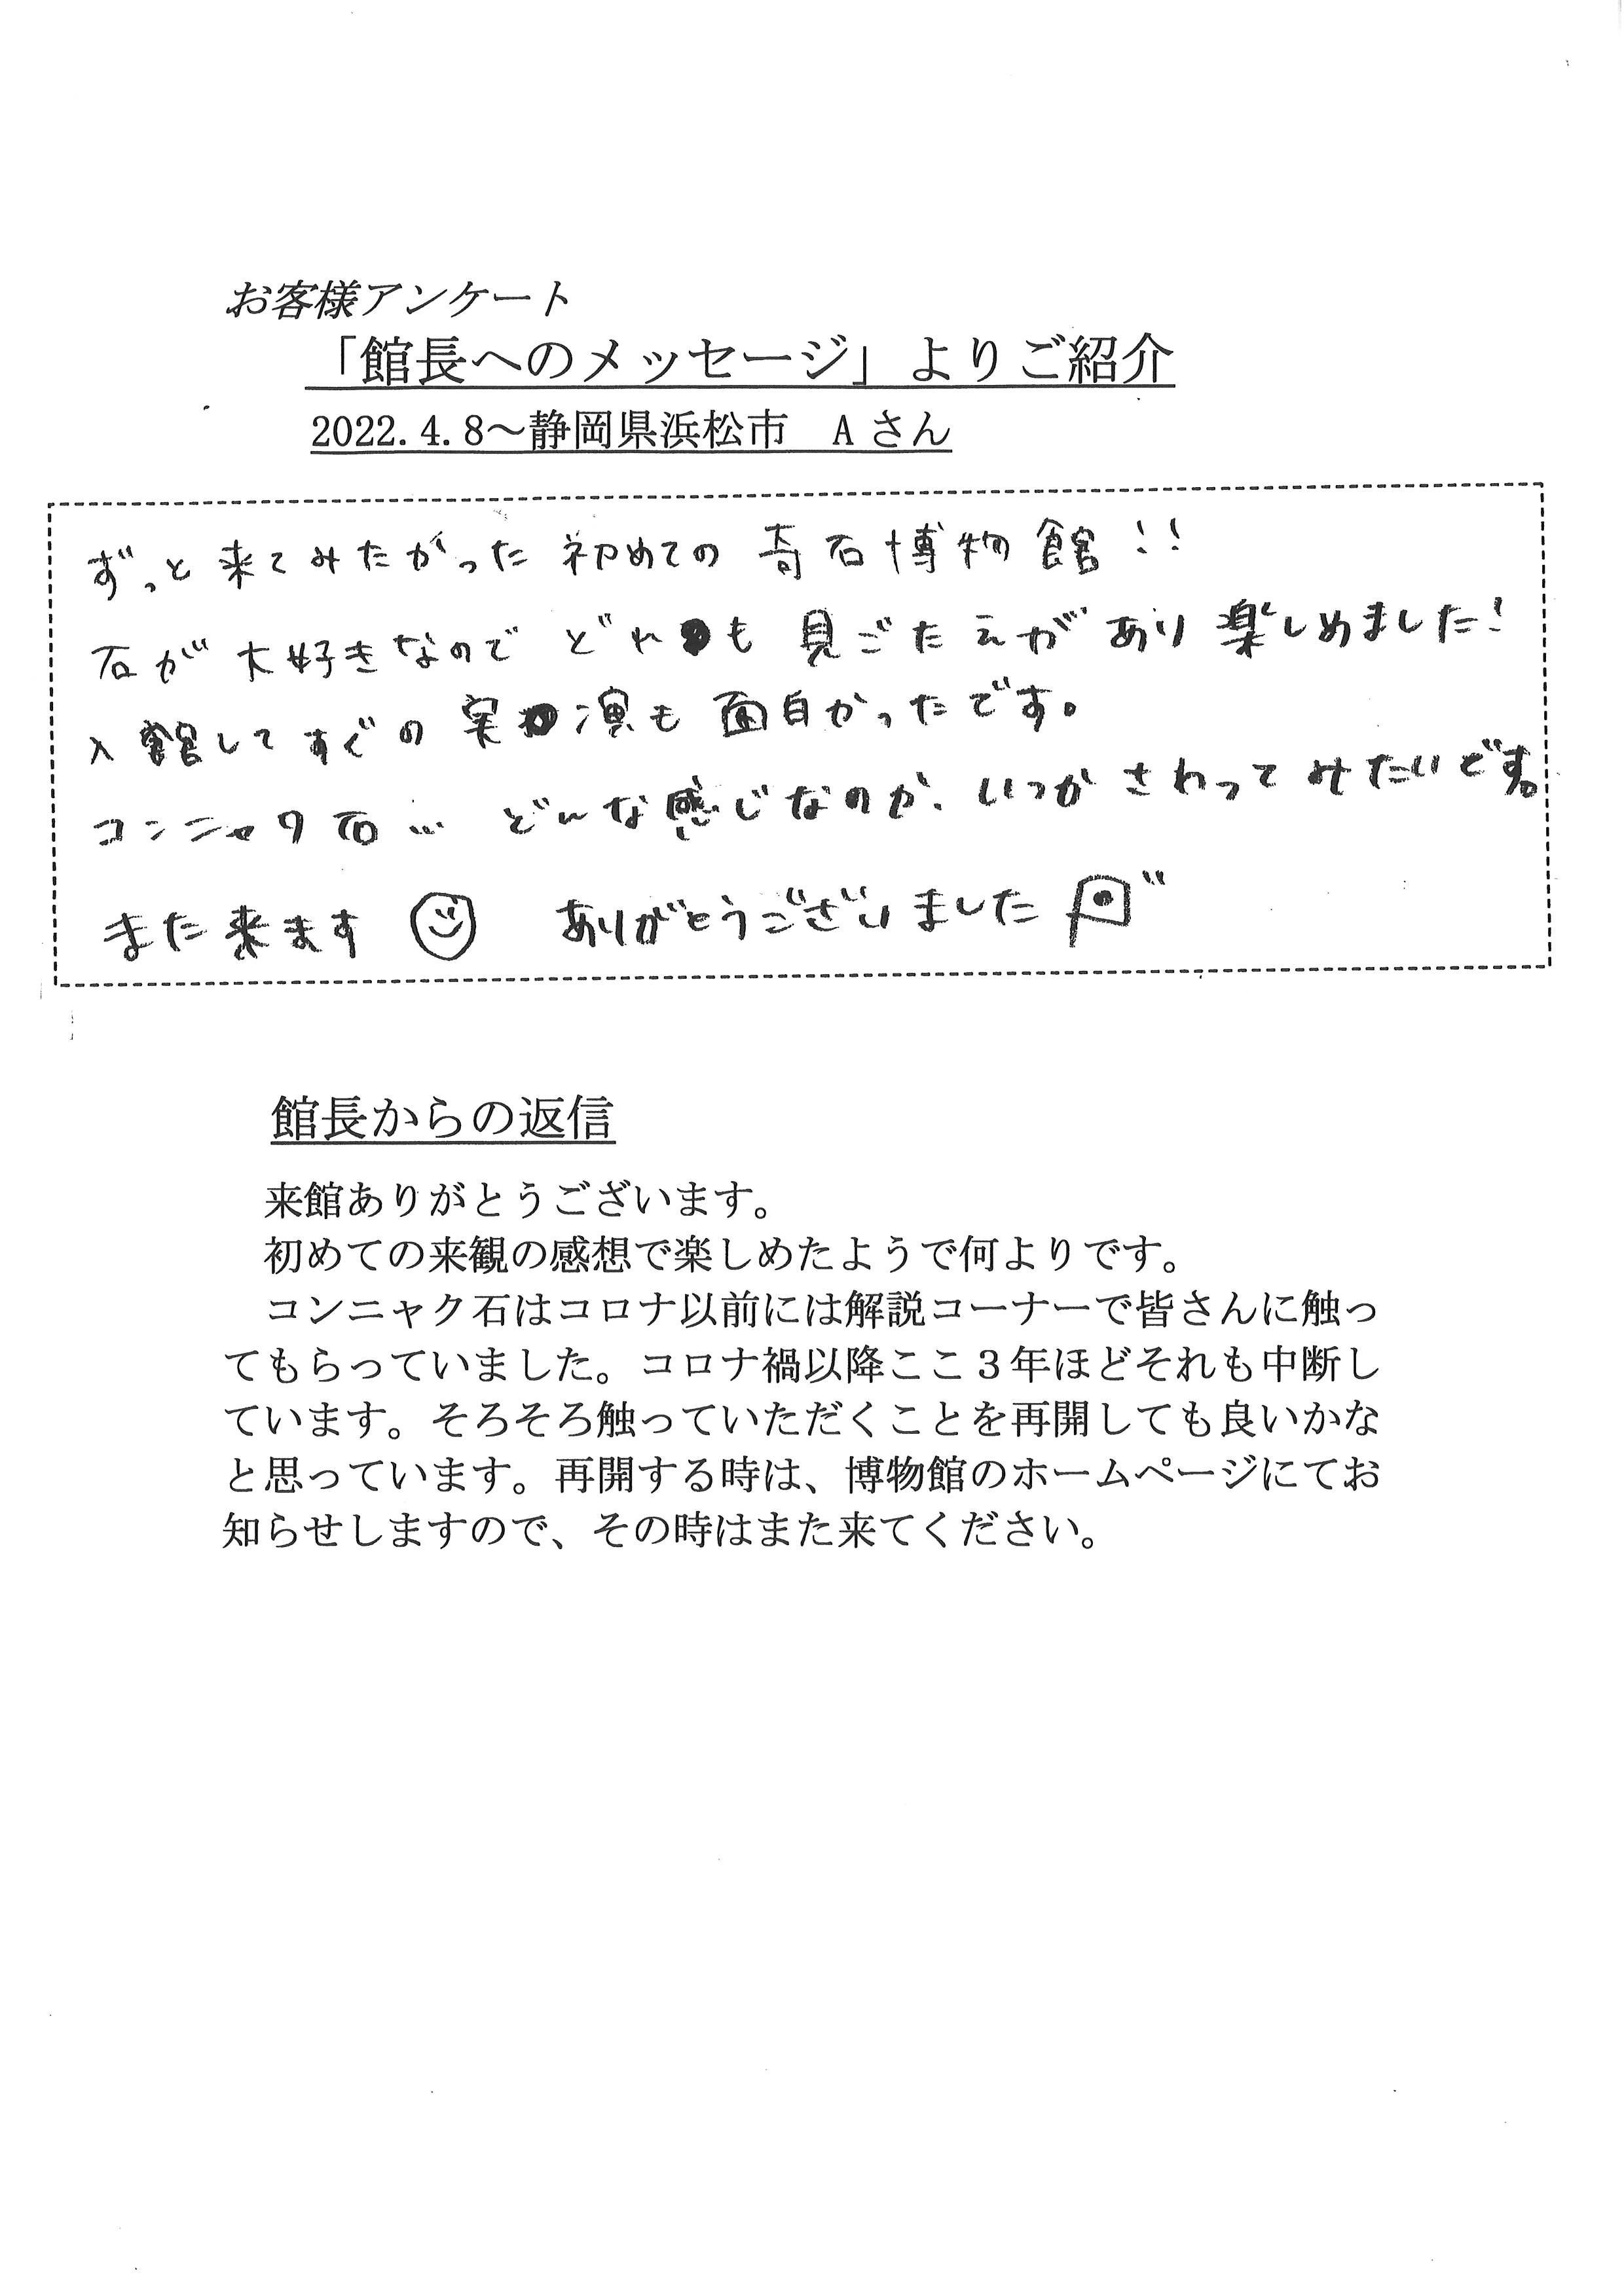 お客様アンケート
「館長へのメッセージ」よりご紹介
2022.4.8～静岡県浜松市　Aさん
ずっと来てみたかった初めての奇石博物館!!
石が大好きなのでどれも見ごたえがあり楽しめました!
入館してすぐの実演も面白かったです。
コンニャク石…どんな感じなのか、いつかさわってみたいです。
また来ます ありがとうございました
館長からの返信
来館ありがとうございます。
初めての来観の感想で楽しめたようで何よりです。
コンニャク石はコロナ以前には解説コーナーで皆さんに触っ
てもらっていました。コロナ禍以降ここ３年ほどそれも中断し
ています。そろそろ触っていただくことを再開しても良いかな
と思っています。再開する時は、博物館のホームページにてお
知らせしますので、その時はまた来てください。